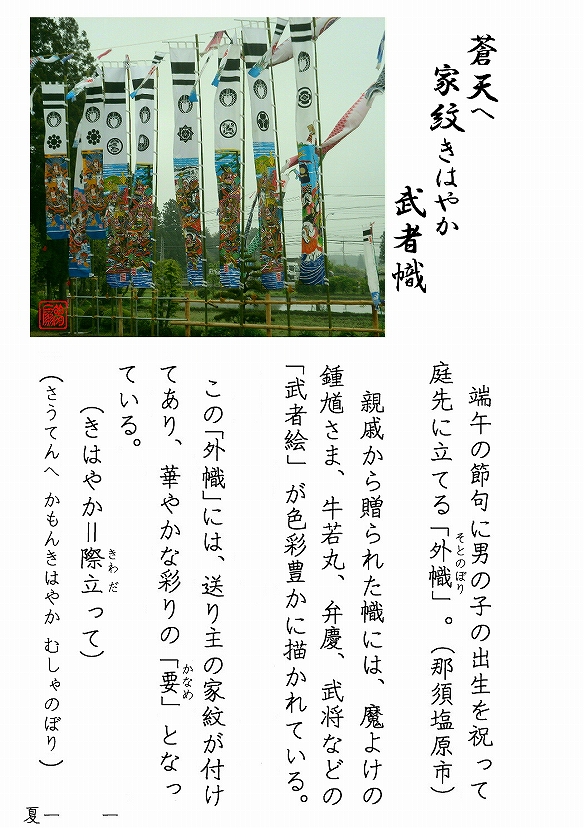 蒼天へ
家紋きはやか
武者幟
端午の節句に男の子の出生を祝って
庭先に立てる「外幟」。（那須塩原市）
そとのぼり
親戚から贈られた幟には、魔よけの
鍾馗さま、牛若丸、弁慶、武将などの
「武者絵」が色彩豊かに描かれている。
この「外幟」には、送り主の家紋が付け
てあり、華やかな彩りの「要」となっ
かなめ
ている。
（きはやか＝際立って）
きわだ
（さうてんへ かもんきはやか むしゃのぼり）
夏一 一